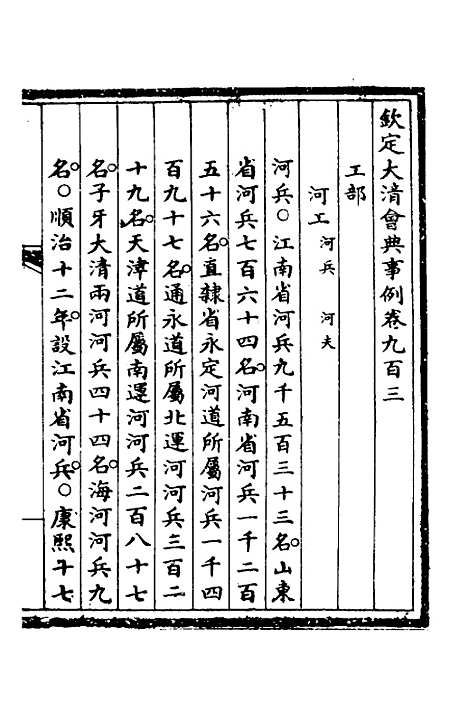 欽定大清會典事例卷九百三
工部
河工河兵 河夫
河兵○江南省河兵九千五百三十三名。山東
省河兵七百六十四名。河南省河兵一千二百
五十六名。直隸省永定河道所屬河兵一千四
百九十七名。通永道所屬北運河河兵三百二
十九名。天津道所屬南運河河兵二百八十七
名。子牙大清兩河河兵四十四名。海河河兵九
名。○順治十二年。設江南省河兵。○康熙十七